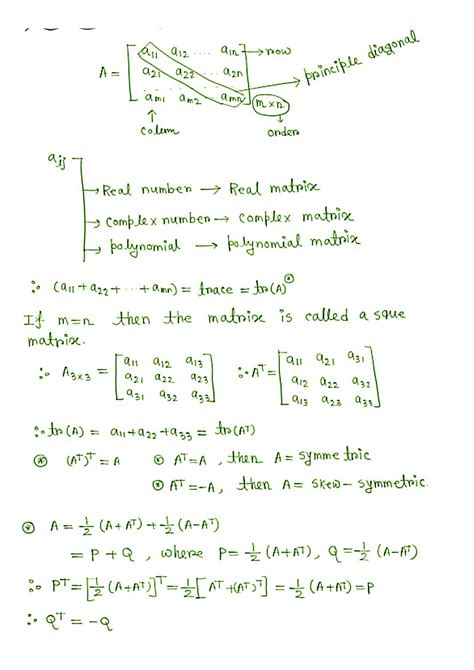 a₁₁ a₁₂ ... a₁ₙ → row
A = [ a₂₁ a₂₂ ... a₂ₙ ] → principle diagonal
aₘ₁ aₘ₂ ... aₘₙ m×n
↑ ↓
colum order
aᵢⱼ
→ Real number → Real matrix
→ complex number → complex matrix
→ polynomial → polynomial matrix
∴ (a₁₁ + a₂₂ + ... + aₘₙ) = trace = tr(A)^⊛
If m=n then the matrix is called a sque
matrix.
∴ A₃ₓ₃ = [ a₁₁ a₁₂ a₁₃ ; a₂₁ a₂₂ a₂₃ ; a₃₁ a₃₂ a₃₃ ] ∴ Aᵀ = [ a₁₁ a₂₁ a₃₁ ; a₁₂ a₂₂ a₃₂ ; a₁₃ a₂₃ a₃₃ ]
∴ tr(A) = a₁₁ + a₂₂ + a₃₃ = tr(Aᵀ)
⊛ (Aᵀ)ᵀ = A ⊛ Aᵀ = A , then A = symmetric
⊛ Aᵀ = -A, then A = skew-symmetric.
⊛ A = 1/2 (A + Aᵀ) + 1/2 (A - Aᵀ)
= P + Q , where P = 1/2 (A + Aᵀ), Q = 1/2 (A - Aᵀ)
∴ Pᵀ = [1/2 (A + Aᵀ)]ᵀ = 1/2 [Aᵀ + (Aᵀ)ᵀ] = 1/2 (A + Aᵀ) = P
∴ Qᵀ = -Q